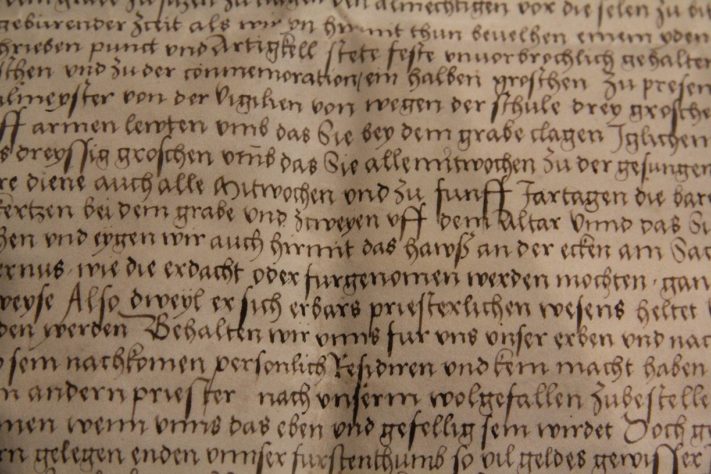 almechtigen vor die selen zu
geburender Zceit als wir yn hirmit thun bevelhen einem yden
schrieben punct und Artigkell stete feste unvorbrochlich gehalten
und zu der commemoration ein halben groschen zu presen
almeyster von der Vigilien von wegen der schule drey grosche
ff armen lewten vmb das Sie bey dem grabe clagen Iglichen
dreyssig groschen vmb das Sie alle mitwochen zu der gesungen
re diene auch alle Mitwochen vnd zu funff Jartagen die bar
kertzen bei dem grabe vnd zcweyen vff dem Altar Vnnd das Si
vnd eygen wir auch hirmit das hawß an der ecken am Sac
ernus wie die erdacht oder furgenomen werden mochten gan
weyse Also dweyl er sich erbars priesterlichen wesens heltet
den werden Behalten wir vnns fur vns vnser erben vnd nac
sein nachkomen personlich Residiren vnd kein macht haben
n andern priester nach vnserm wolgefallen zubestelle
men wenn vnns das eben vnd gefellig sein wirdet Doch ge
rn gelegen enden vnnser furstenthumb so vil geldes gewisser